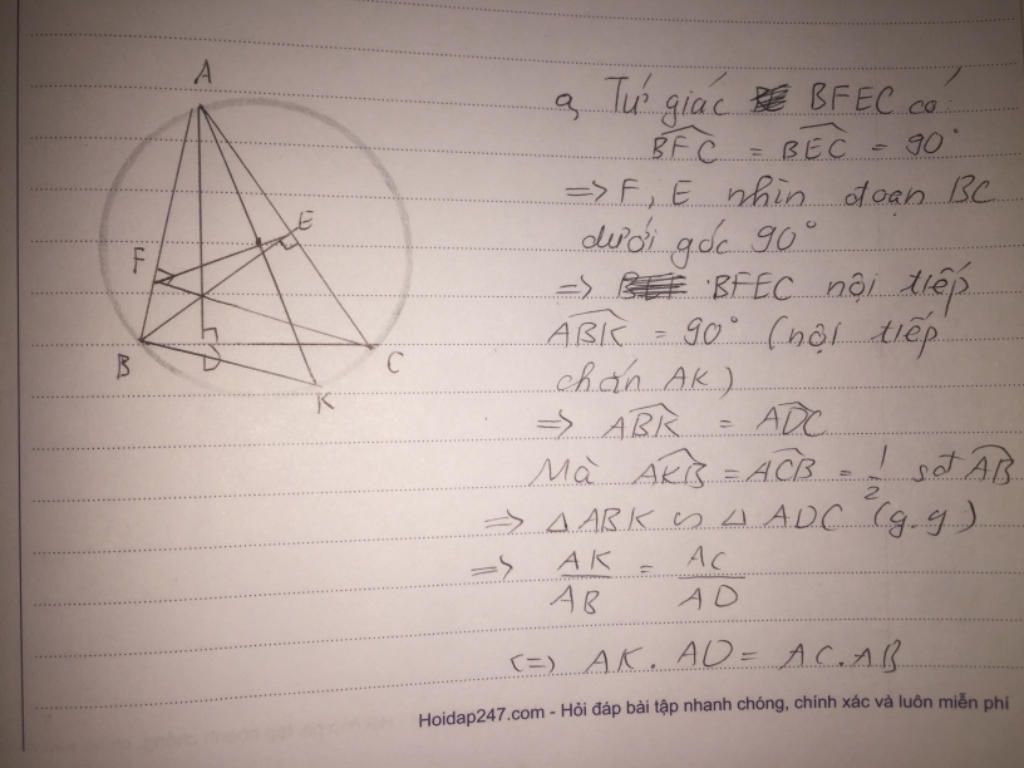 A
E
F
B
D
C
K
a, Tứ giác BFEC có:
BFC = BEC = 90°
=> F, E nhìn đoạn BC
dưới góc 90°
=> BFEC nội tiếp
ABK = 90° (nội tiếp
chắn AK)
=> ABK = ADC
Mà AKB = ACB = 1/2 sđ AB
=> Δ ABK ∽ Δ ADC (g.g)
=> AK/AB = AC/AD
(=) AK. AD = AC. AB
Hoidap247.com - Hỏi đáp bài tập nhanh chóng, chính xác và luôn miễn phí